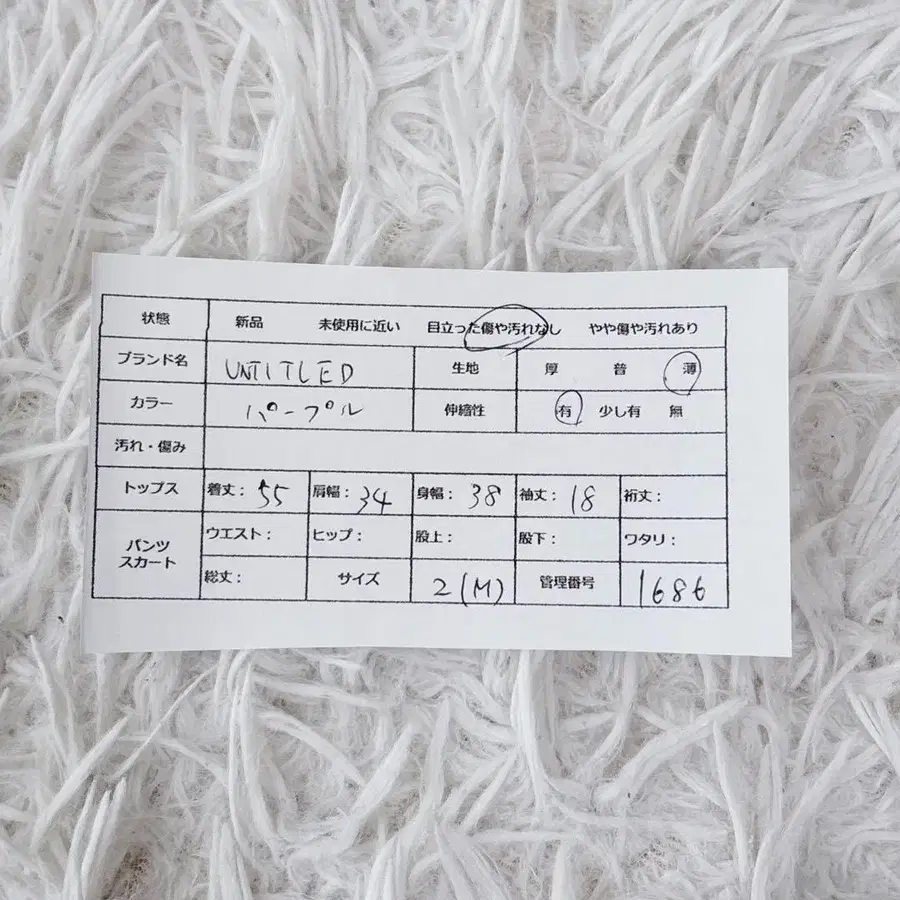 状態 新品 未使用に近い 目立った傷や汚れなし やや傷や汚れあり
ブランド名 UNTITLED 生地 厚 普 薄
カラー パープル 伸縮性 有 少し有 無
汚れ・傷み
トップス 着丈: 55 肩幅: 34 身幅: 38 袖丈: 18 裄丈:
パンツ スカート ウエスト: ヒップ: 股上: 股下: ワタリ:
総丈: サイズ 2(M) 管理番号 1686